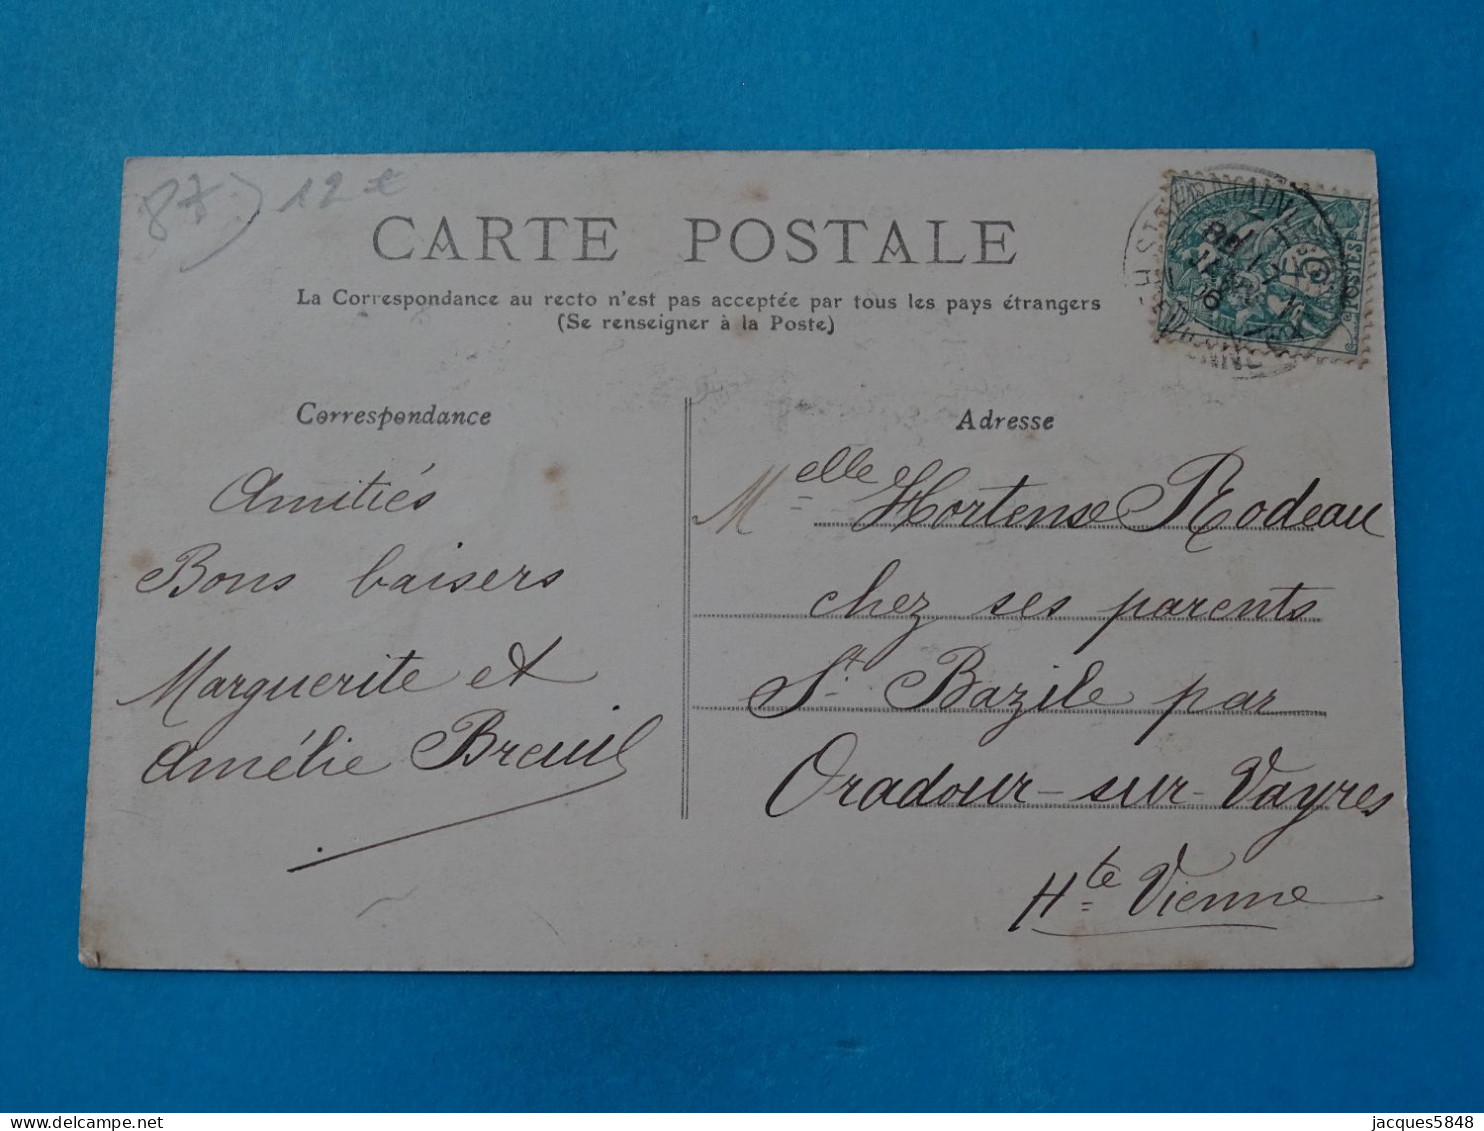 87 12€
CARTE POSTALE
La Correspondance au recto n'est pas acceptée par tous les pays étrangers
(Se renseigner à la Poste)
POSTES
Correspondance
Amitiés
Bons baisers
Marguerite et
Amélie Breuil
Adresse
Melle Hortense Rodeau
chez ses parents
St. Bazile par
Oradour-sur-Vayres
Hte Vienne
jacques5848